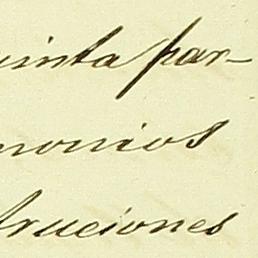 uinta par-
monios
truciones